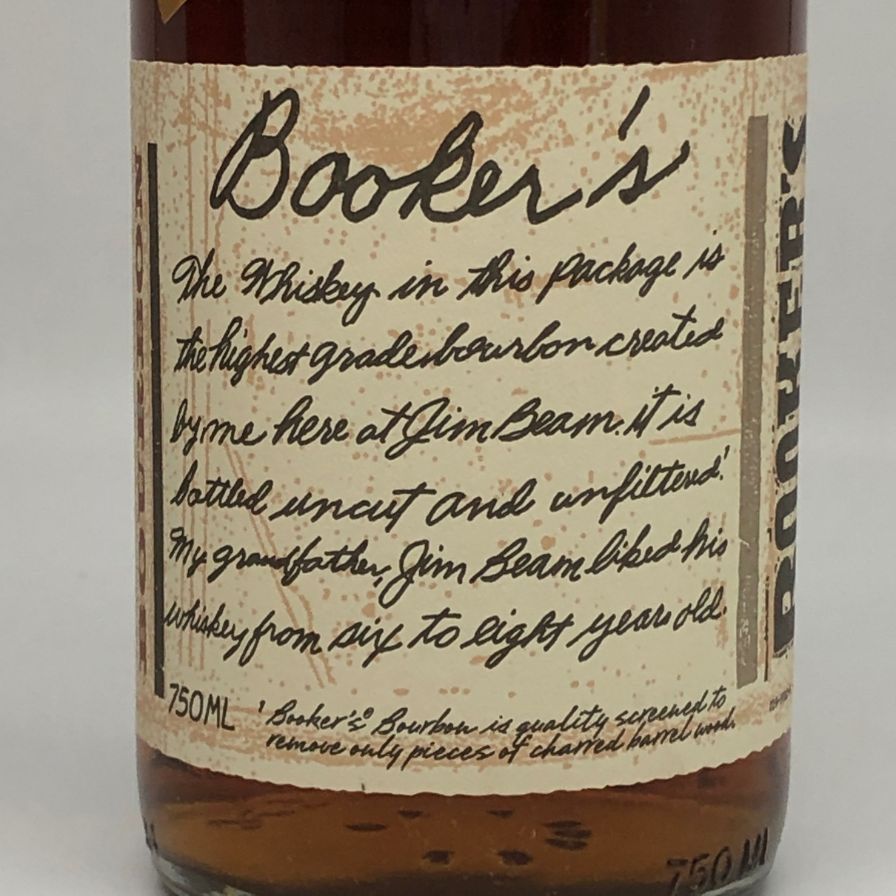 Booker's
The Whiskey in this package is
the highest grade bourbon created
by me here at Jim Beam. it is
bottled uncut and unfiltered.¹
My grandfather, Jim Beam liked his
whiskey from six to eight years old.
750ML
¹ Booker's® Bourbon is quality screened to
remove only pieces of charred barrel wood.
BOOKER'S
750 Ml